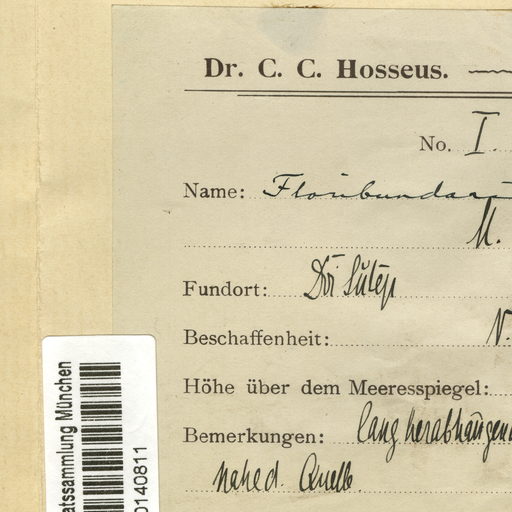 Dr. C. C. Hosseus.
No. I.
Name: Floribundari
M.
Fundort: Doi Sŭtép
Beschaffenheit: N.
Höhe über dem Meeresspiegel:
Bemerkungen: lang herabhängend
nahe d. Quelle.
atssammlung München
0140811